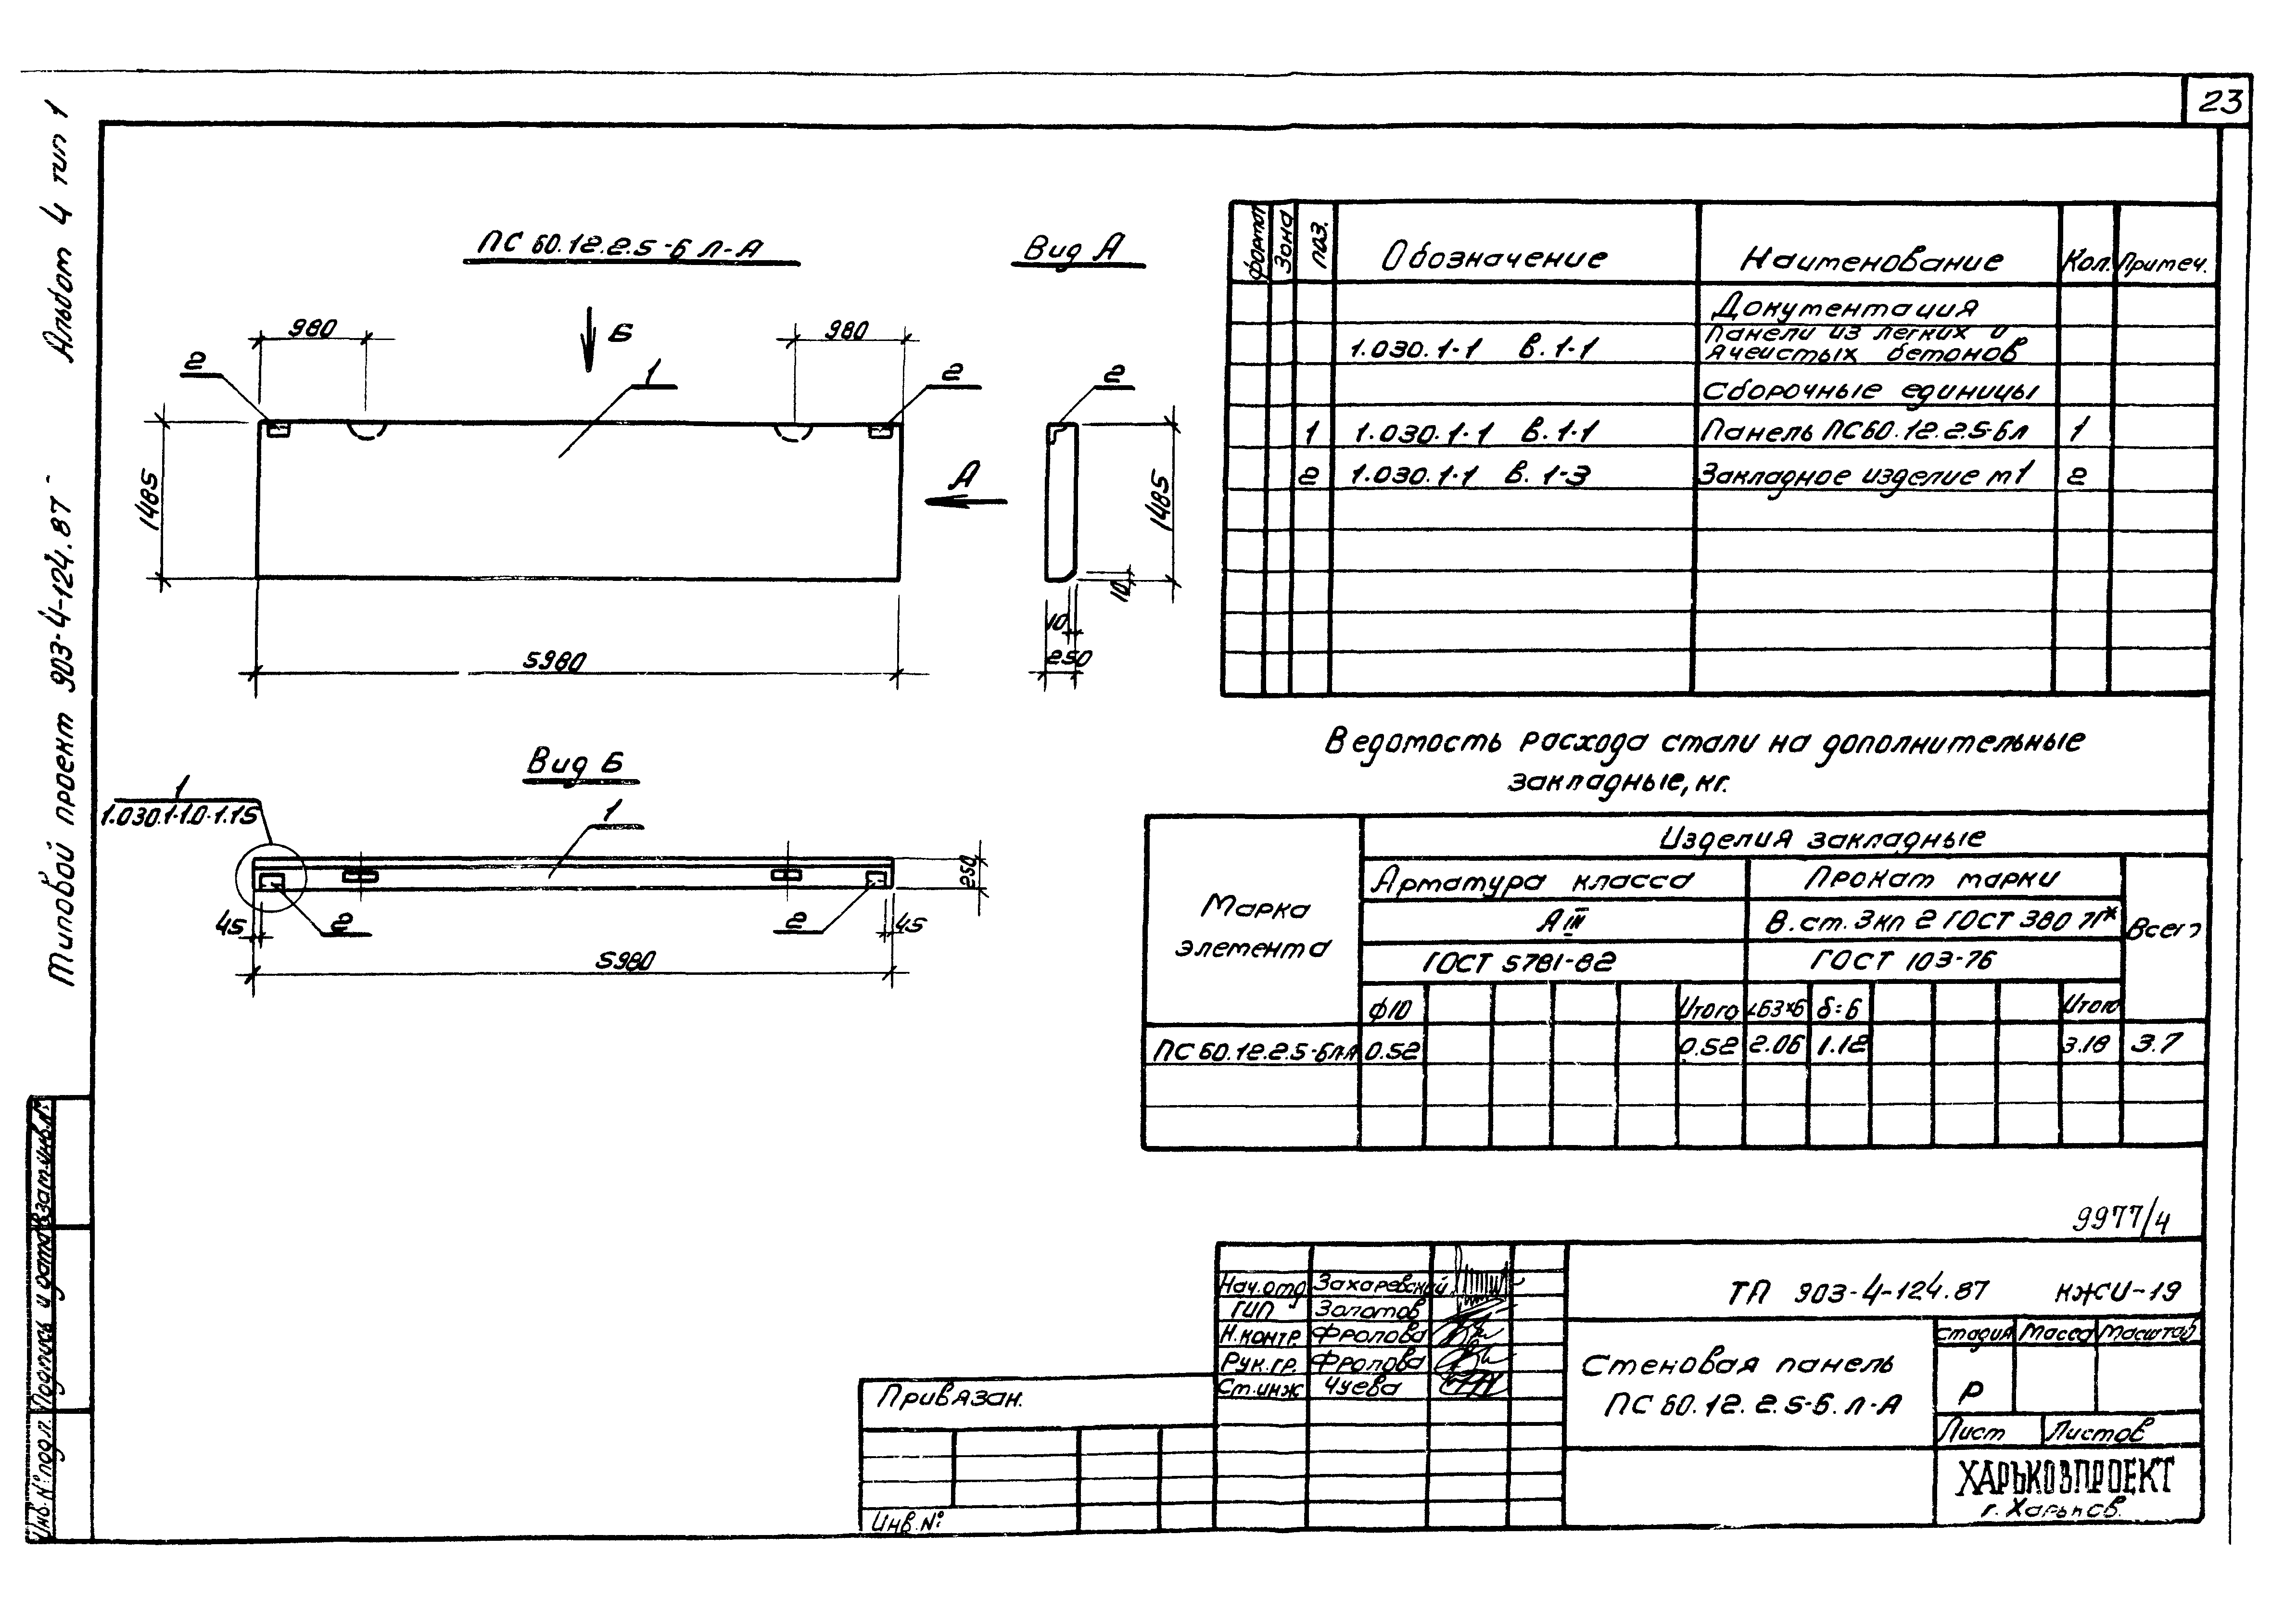 23
Альбом 4 тип 1
Типовой проект 903-4-124.87
ПС 60.12.2.5-6 Л-А
Вид А
980
980
Б
2
1
2
2
1485
А
1485
10
10
5980
250
Вид Б
1
1.030.1-1.0-1.15
1
250
45
2
2
45
5980
Формат Зона Поз. Обозначение Наименование Кол. Примеч.
Документация
1.030.1-1 в.1-1 Панели из легких и
ячеистых бетонов
Сборочные единицы
1 1.030.1-1 в.1-1 Панель ПС60.12.2.5-6л 1
2 1.030.1-1 в.1-3 Закладное изделие м1 2
Ведомость расхода стали на дополнительные
закладные, кг.
Марка элемента
Изделия закладные
Арматура класса Прокат марки Всего
А III В.ст.3кп 2 ГОСТ 380 71*
ГОСТ 5781-82 ГОСТ 103-76
ф10 Итого L63x6 δ=6 Итого
ПС 60.12.2.5-6л-А 0.52 0.52 2.06 1.12 3.18 3.7
9977/4
Взам.инв.№
Подпись и дата
Инв.№ подл.
Нач.отд Захаревский
ГИП Золотов
Н.контр. Фролова
Рук.гр. Фролова
Ст.инж Чуева
ТП 903-4-124.87 КЖСИ-19
Стеновая панель
ПС 60.12.2.5-6.Л-А
Стадия Масса Масштаб
Р
Лист Листов
ХАРЬКОВПРОЕКТ
г. Харьков.
Привязан.
Инв.№